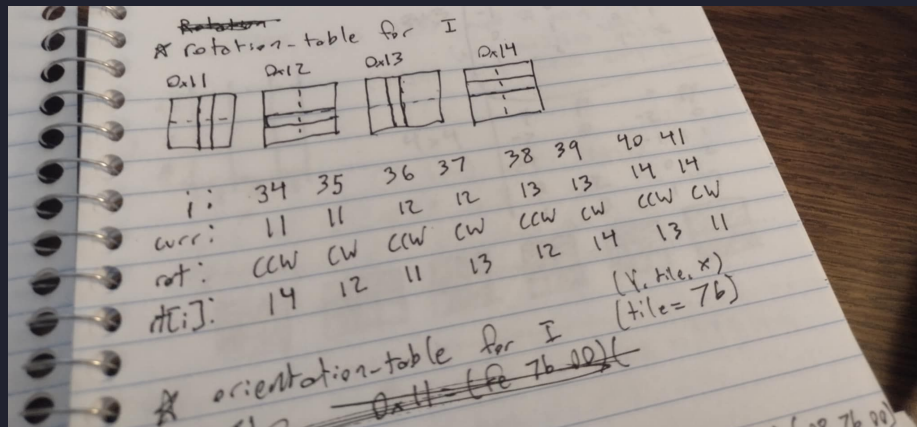 Rotation
☆ rotation-table for I
0x11 0x12 0x13 0x14
i: 34 35 36 37 38 39 40 41
curr: 11 11 12 12 13 13 14 14
rot: CCW CW CCW CW CCW CW CCW CW
rt[i]: 14 12 11 13 12 14 13 11
(Y, tile, X)
☆ orientation-table for I (tile= 7b)
0x11 = (fe 7b 00)(
7b 00)